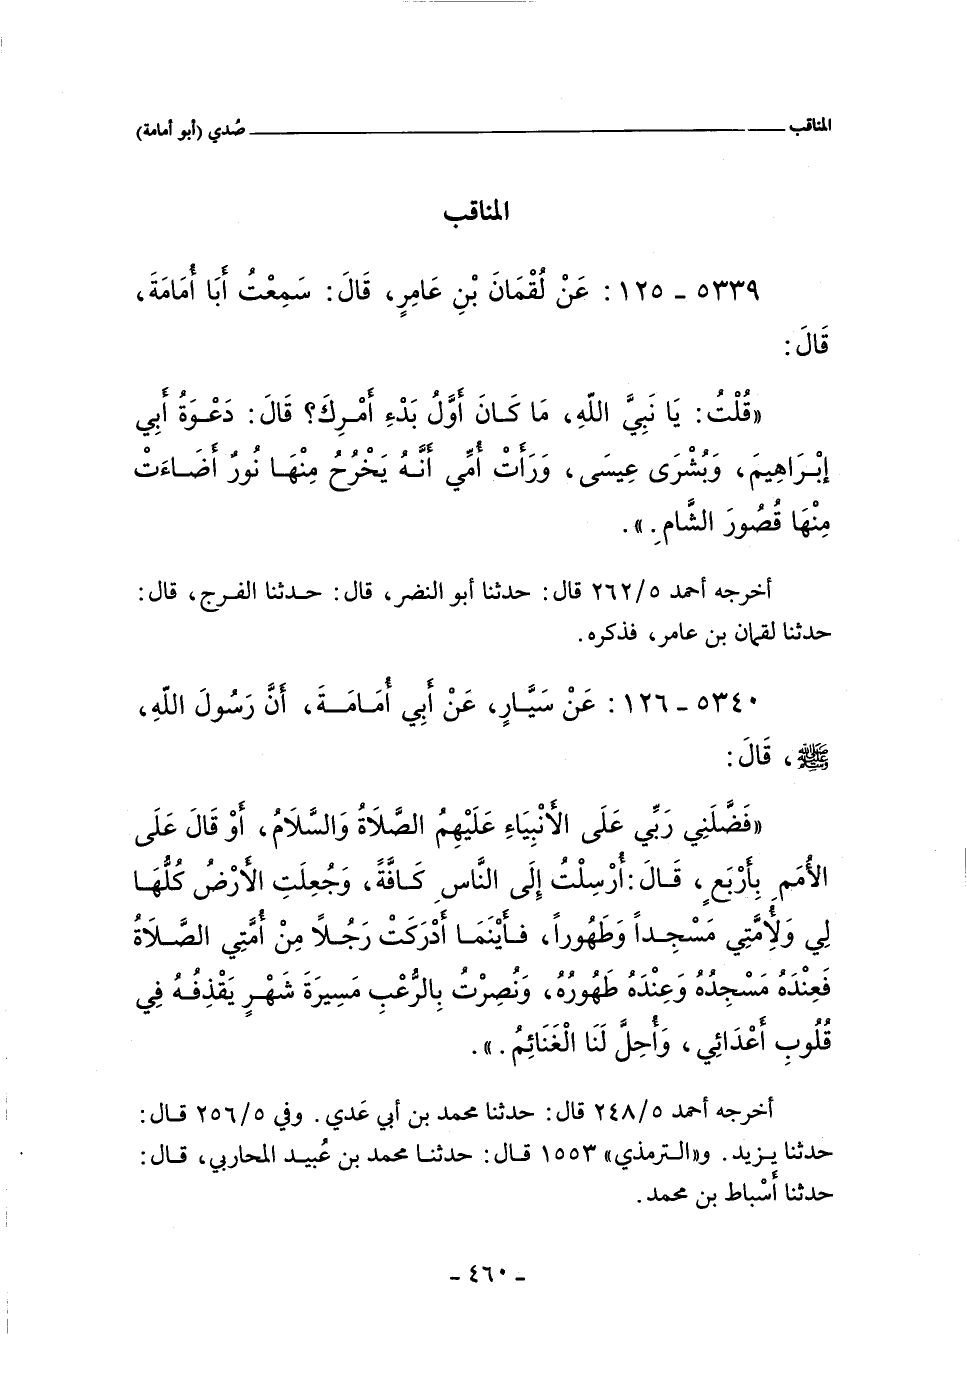 المناقب ـــــــ صُدي (أبو أمامة)
المناقب
٥٣٣٩ ـ ١٢٥ : عَنْ لُقْمَانَ بْنِ عَامِرٍ، قَالَ: سَمِعْتُ أَبَا أُمَامَةَ،
قَالَ:
«قُلْتُ: يَا نَبِيَّ اللّهِ، مَا كَانَ أَوَّلُ بَدْءِ أَمْرِكَ؟ قَالَ: دَعْوَةُ أَبِي
إِبْرَاهِيمَ، وَبُشْرَى عِيسَى، وَرَأَتْ أُمِّي أَنَّهُ يَخْرُجُ مِنْهَا نُورٌ أَضَاءَتْ
مِنْهَا قُصُورَ الشَّامِ.».
أخرجه أحمد ٢٦٢/٥ قال: حدثنا أبو النضر، قال: حدثنا الفرج، قال:
حدثنا لقمان بن عامر، فذكره.
٥٣٤٠ ـ ١٢٦ : عَنْ سَيَّارٍ، عَنْ أَبِي أُمَامَةَ، أَنَّ رَسُولَ اللّهِ،
ﷺ، قَالَ:
«فَضَّلَنِي رَبِّي عَلَى الأَنْبِيَاءِ عَلَيْهِمُ الصَّلَاةُ وَالسَّلَامُ، أَوْ قَالَ عَلَى
الأُمَمِ بِأَرْبَعٍ، قَالَ: أُرْسِلْتُ إِلَى النَّاسِ كَافَّةً، وَجُعِلَتِ الأَرْضُ كُلُّهَا
لِي وَلأُِمَّتِي مَسْجِداً وَطَهُوراً، فَأَيْنَمَا أَدْرَكَتْ رَجُلاً مِنْ أُمَّتِي الصَّلَاةُ
فَعِنْدَهُ مَسْجِدُهُ وَعِنْدَهُ طَهُورُهُ، وَنُصِرْتُ بِالرُّعْبِ مَسِيرَةَ شَهْرٍ يَقْذِفُهُ فِي
قُلُوبِ أَعْدَائِي، وَأُحِلَّ لَنَا الْغَنَائِمُ.».
أخرجه أحمد ٢٤٨/٥ قال: حدثنا محمد بن أبي عَدي. وفي ٢٥٦/٥ قال:
حدثنا يزيد. و«الترمذي» ١٥٥٣ قال: حدثنا محمد بن عُبيد المحاربي، قال:
حدثنا أَسْباط بن محمد.
ـ ٤٦٠ ـ